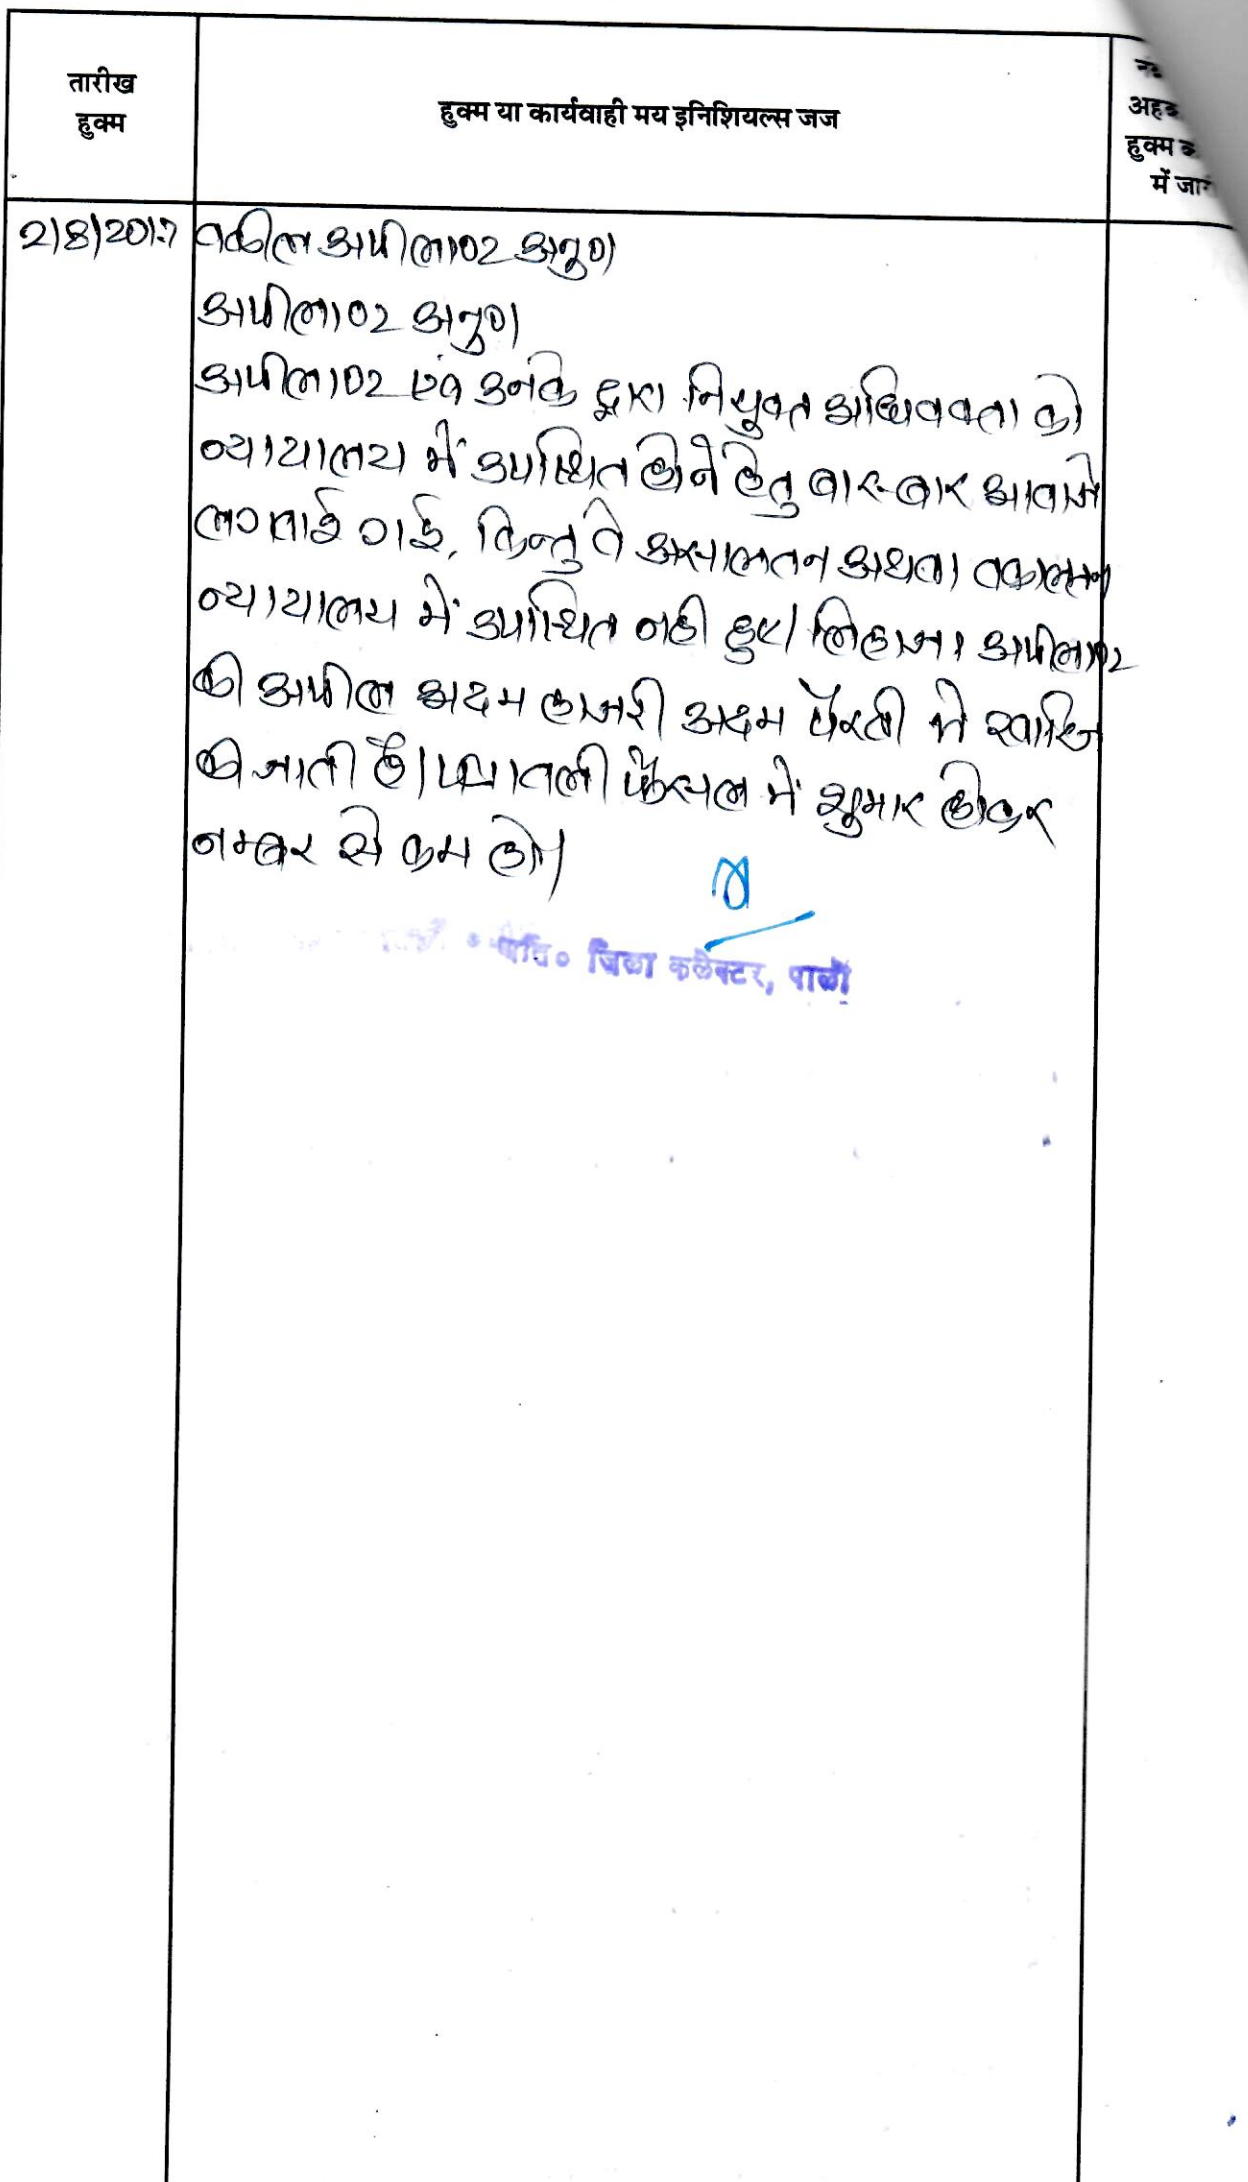 तारीख
हुक्म
हुक्म या कार्यवाही मय इनिशियल्स जज
अहक
हुक्म
में जा
2/8/2017 वकील अपीलाण्ट अनु०।
अपीलाण्ट अनु०।
अपीलाण्ट एवं उनके द्वारा नियुक्त अधिवक्ता को
न्यायालय में उपस्थित होने हेतु बार-बार आवाजे
लगवाई गई, किन्तु वे असालतन अथवा वकालतन
न्यायालय में उपस्थित नही हुए। लिहाजा अपीलाण्ट
की अपील अदम हाजरी अदम पैरवी मे खारिज
की जाती है। पत्रावली फैसल में शुमार होकर
नम्बर से कम हो।
अति० जिला कलेक्टर, पाली